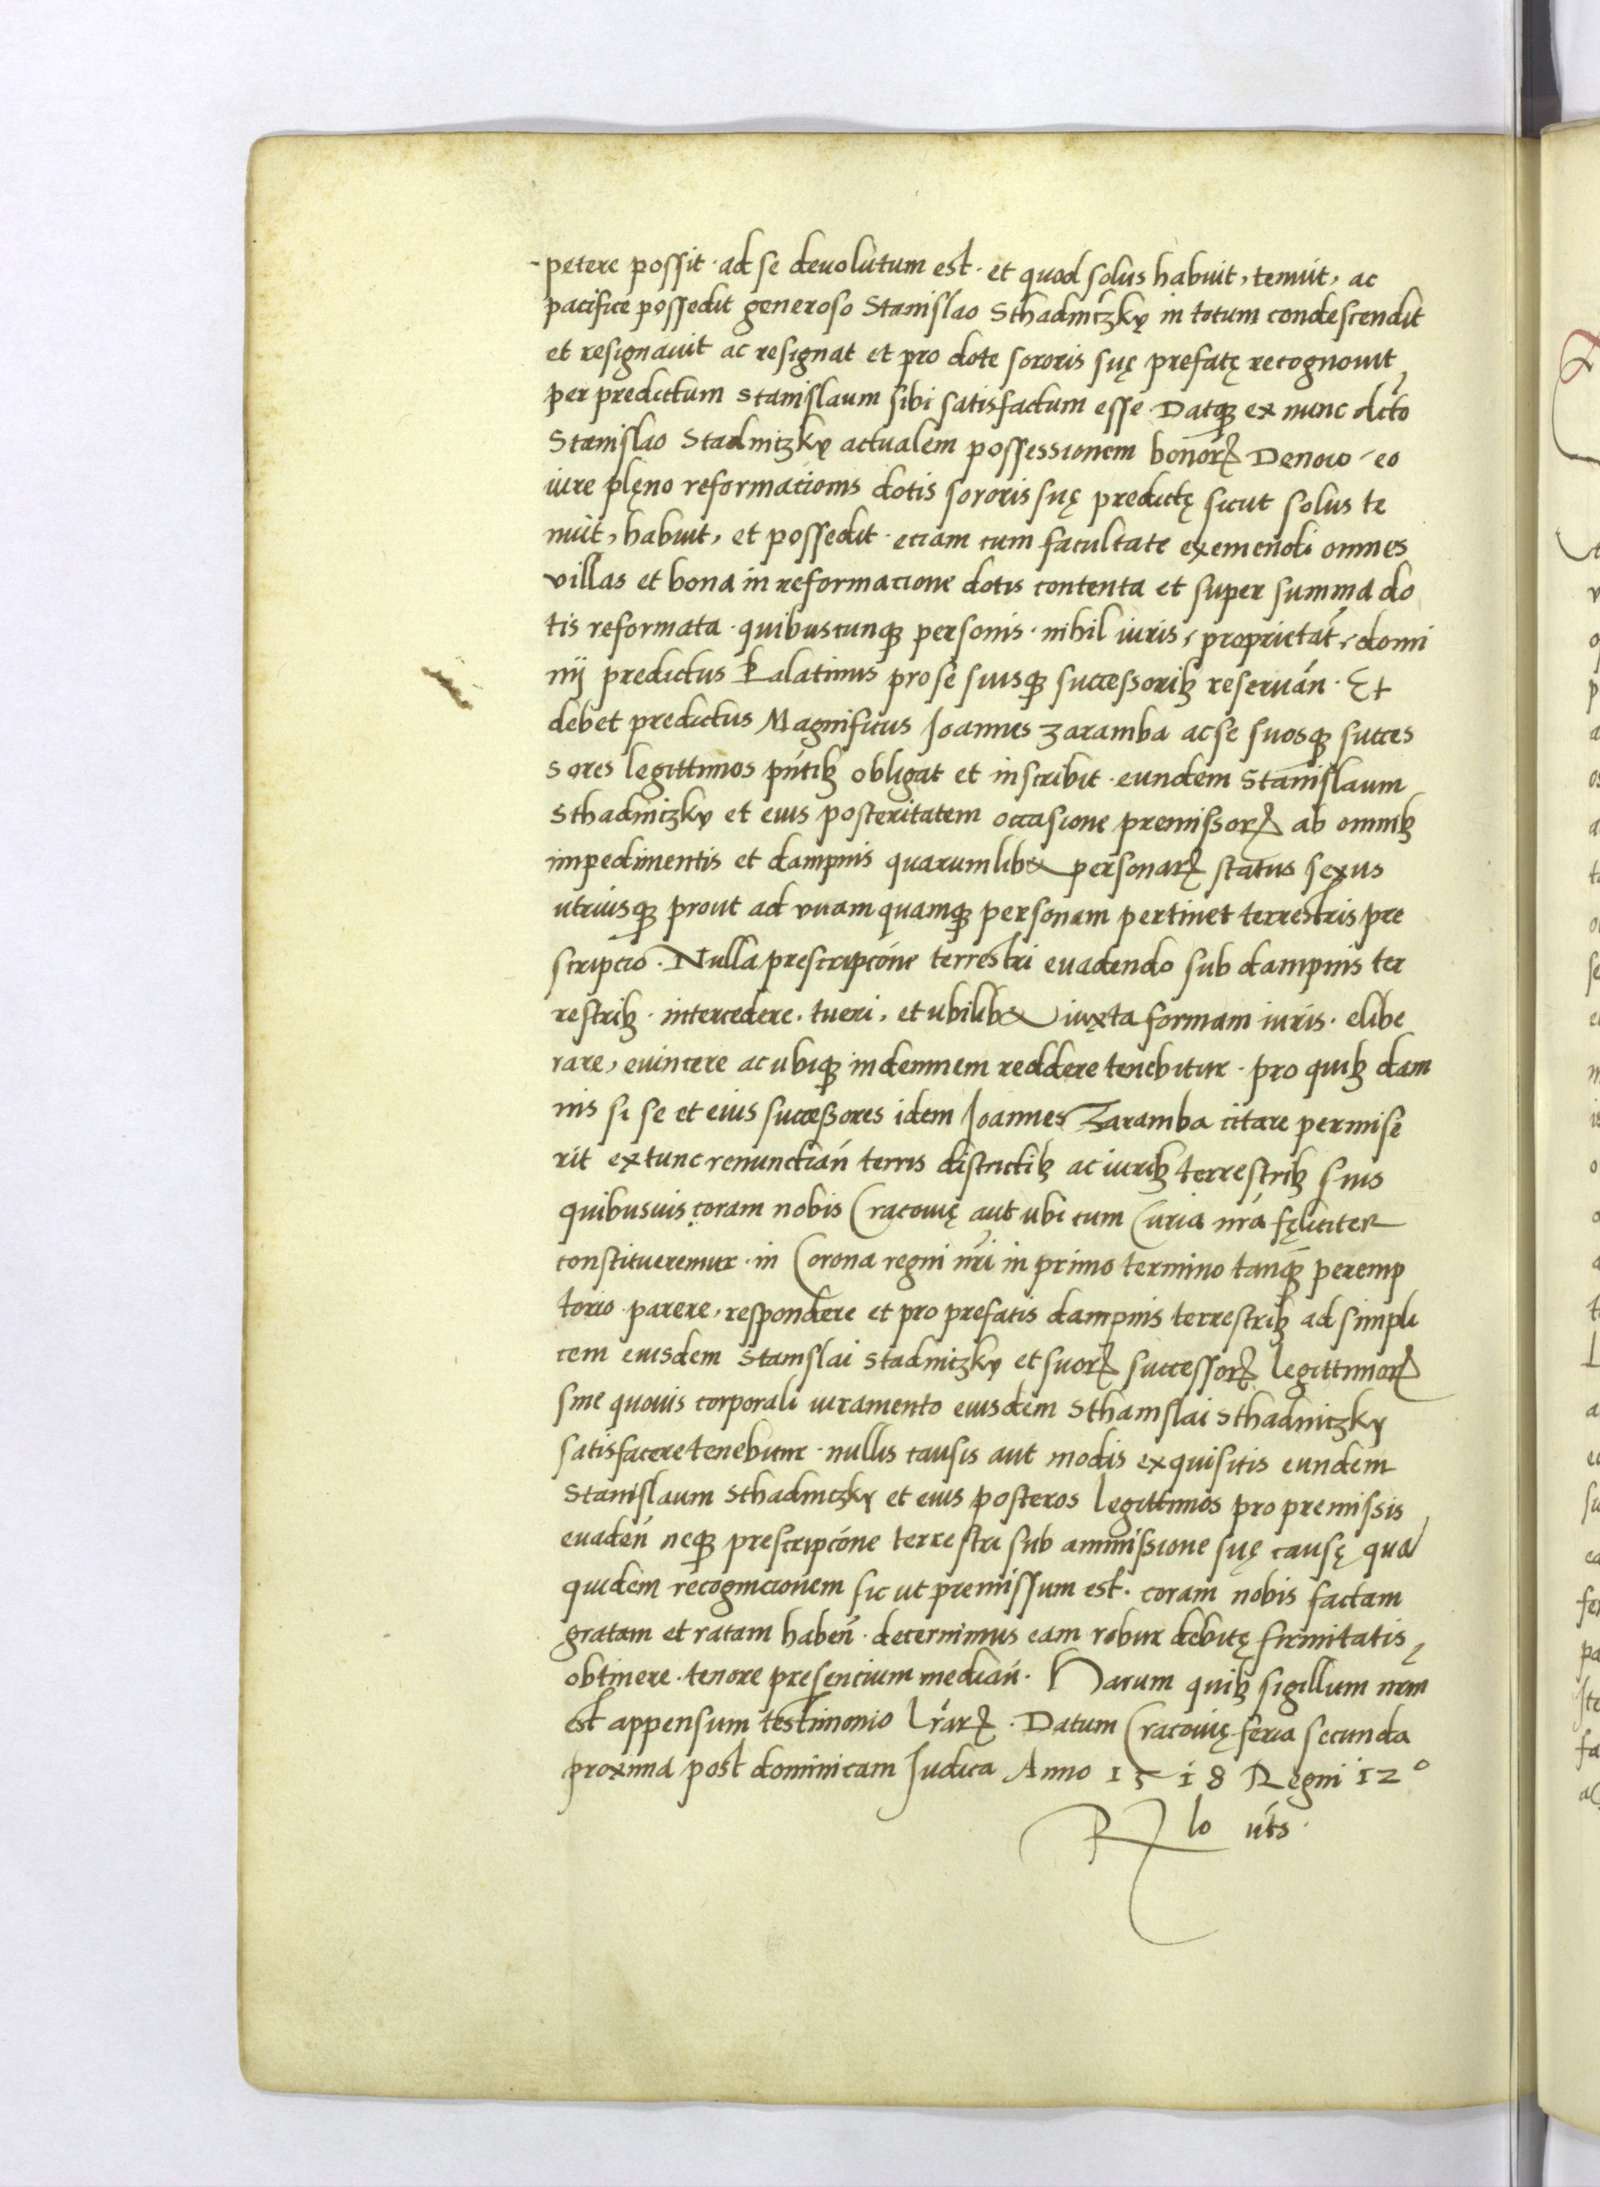 -petere possit · ad se deuolutum est · et quod solus habuit, tenuit, ac
pacifice possedit generoso Stanislao Sthadniczky in totum condescendit
et resignauit ac resignat et pro dote sororis suę prefatę recognouit
per predictum Stanislaum sibi satisfactum esse · Datqꝫ ex nunc dcto
Stanislao Stadniczky actualem possessionem bonorꝝ Denow · eo
iure plęno reformacionis dotis sororis suę predictę sicut solus te
nuit, habuit, et possedit · eciam cum facultate exemendi omnes
villas et bona in reformacione dotis contenta et super summa do
tis reformata · quibuscunqꝫ personis · nihil iuris, proprietat̃, domi
nij predictus Palatinus pro se suisqꝫ successoribꝫ reseruań · Et
debet predictus Magnificus Joannes Zaramba ac se suosqꝫ succes
sores legittimos pńtibꝫ obligat et inscribit · eundem Stanislaum
Sthadniczky et eius posteritatem occasione premissorꝝ ab omnibꝫ
impedimentis et dampnis quarumlibet personarꝝ status sexus
utriusqꝫ prout ad vnam quamqꝫ personam pertinet terrestris pre
scripcio · Nulla prescripcóne terrestri euadendo sub dampnis ter
restribꝫ · intercedere, tueri, et ubilibet iuxta formam iuris · elibe
rare, euincere ac ubiqꝫ indemnem reddere tenebitur · pro quibꝫ dam
nis si se et eius successores idem Joannes Zaramba citare permise
rit extunc renunctiań terris districtibꝫ ac iuribꝫ terrestribꝫ suis
quibusuis coram nobis Cracouię aut ubi cum Curia nra fęliciter
constitueremur · in Corona regni nri in primo termino tanqꝫ peremp
torio parere, respondere et pro prefatis dampnis terrestribꝫ ad simpli
cem eiusdem Stanslai Stadniczky et suorꝝ successorꝝ legittimorꝝ
sine quouis corporali iuramento eiusdem Sthanslai Sthadniczky
satisfacere tenebitur · nullis causis aut modis exquisitis eundem
Stanislaum Sthadniczky et eius posteros legittimos pro premissis
euadeń neqꝫ prescripcóne terrestri sub ammissione suę causę qua
quidem recognicionem sic ut premissum est · coram nobis factam
gratam et ratam habeń · decernimus eam robur debitę firmitatis
obtinere · tenore presencium mediań · Harum quibꝫ sigillum nrm
est appensum testimonio lrarꝝ · Datum Cracouię feria secunda
proxima post dominicam Judica Anno 1518 Regni 12°
Rlo úts ·